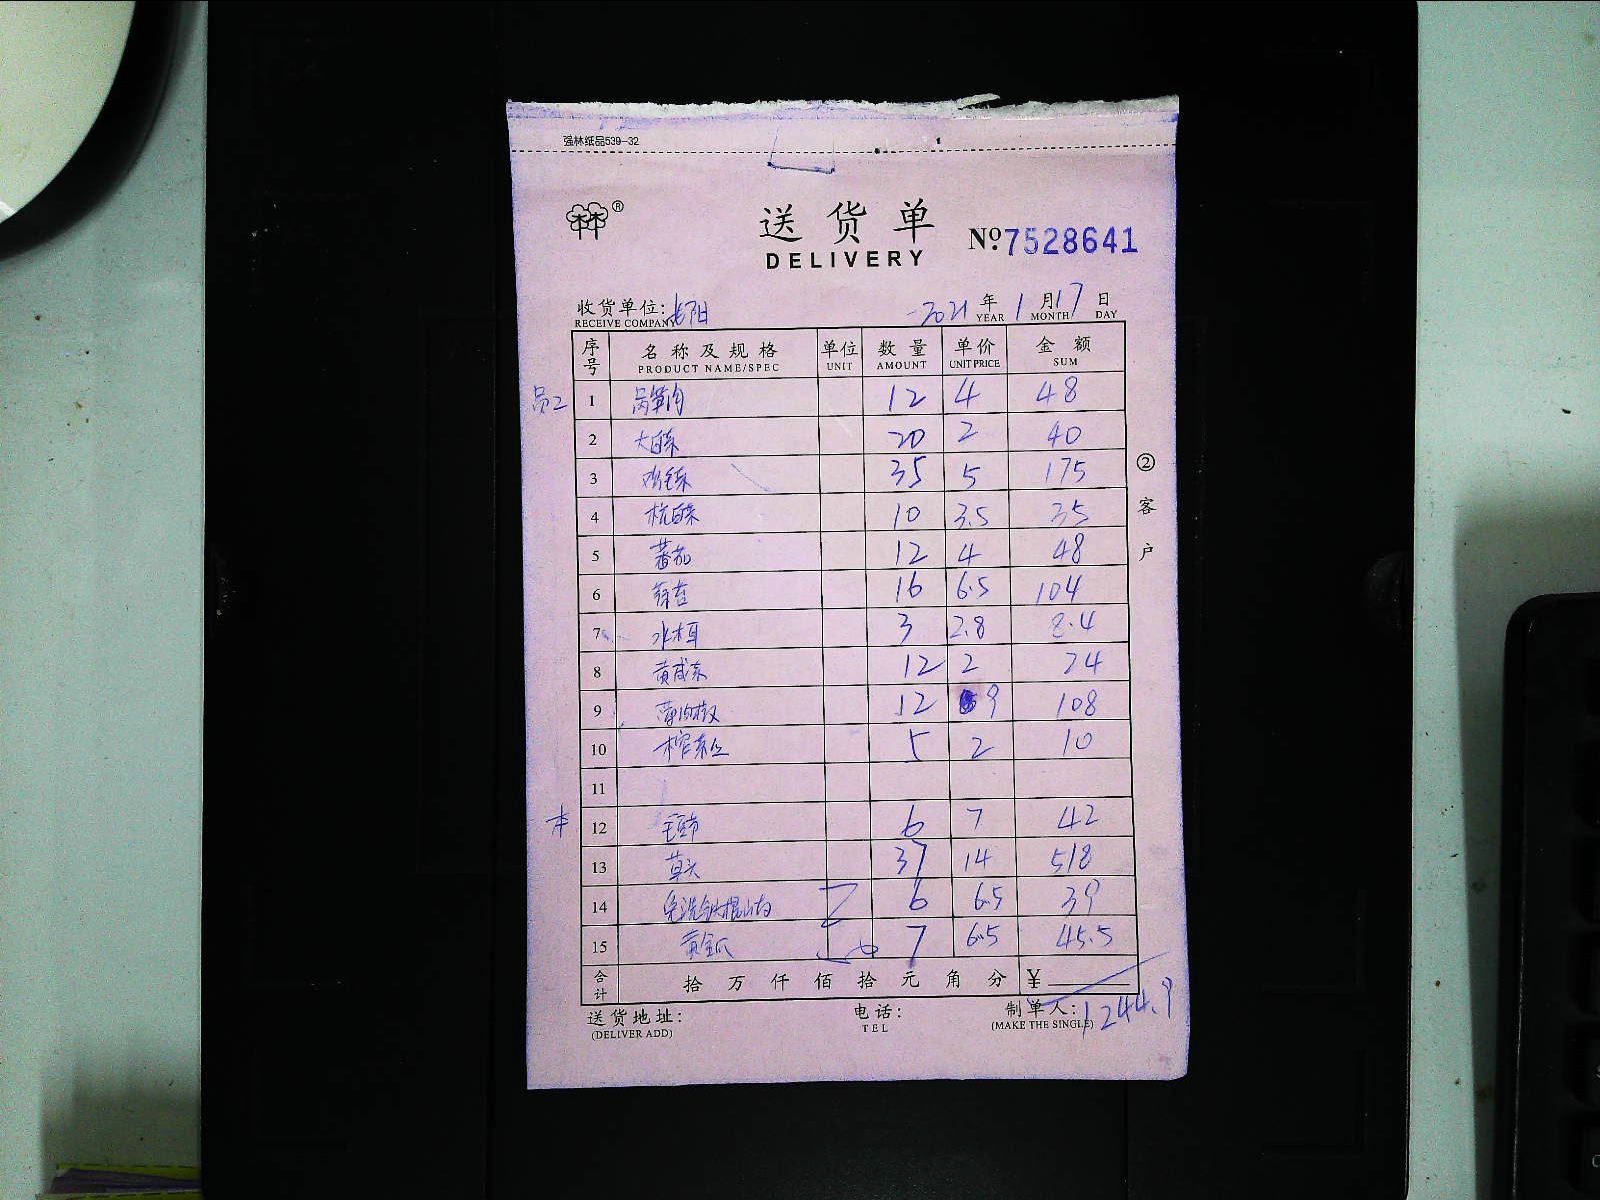 强林纸品539-32
林林®
送货单
DELIVERY
No.7528641
收货单位:
RECEIVE COMPANY
2021年1月17日
YEAR MONTH DAY
序号 名称及规格 单位 数量 单价 金额
PRODUCT NAME/SPEC UNIT AMOUNT UNIT PRICE SUM
员工 1 莴笋肉 12 4 48
2 大白菜 20 2 40
3 鸡毛菜 35 5 175
4 杭白菜 10 3.5 35
5 蕃茄 12 4 48
6 16 6.5 104
7 水木耳 3 2.8 8.4
8 黄咸菜 12 2 24
9 薄肉椒 12 9 108
10 榨菜丝 5 2 10
11
本 12 毛豆节 6 7 42
13 草头 37 14 518
14 免洗铁棍山药 6 6.5 39
15 黄金瓜 7 6.5 45.5
合计 拾万仟佰拾元角分 ¥
1244.9
送货地址: 电话: 制单人:
(DELIVER ADD) TEL (MAKE THE SINGLE)
②客户